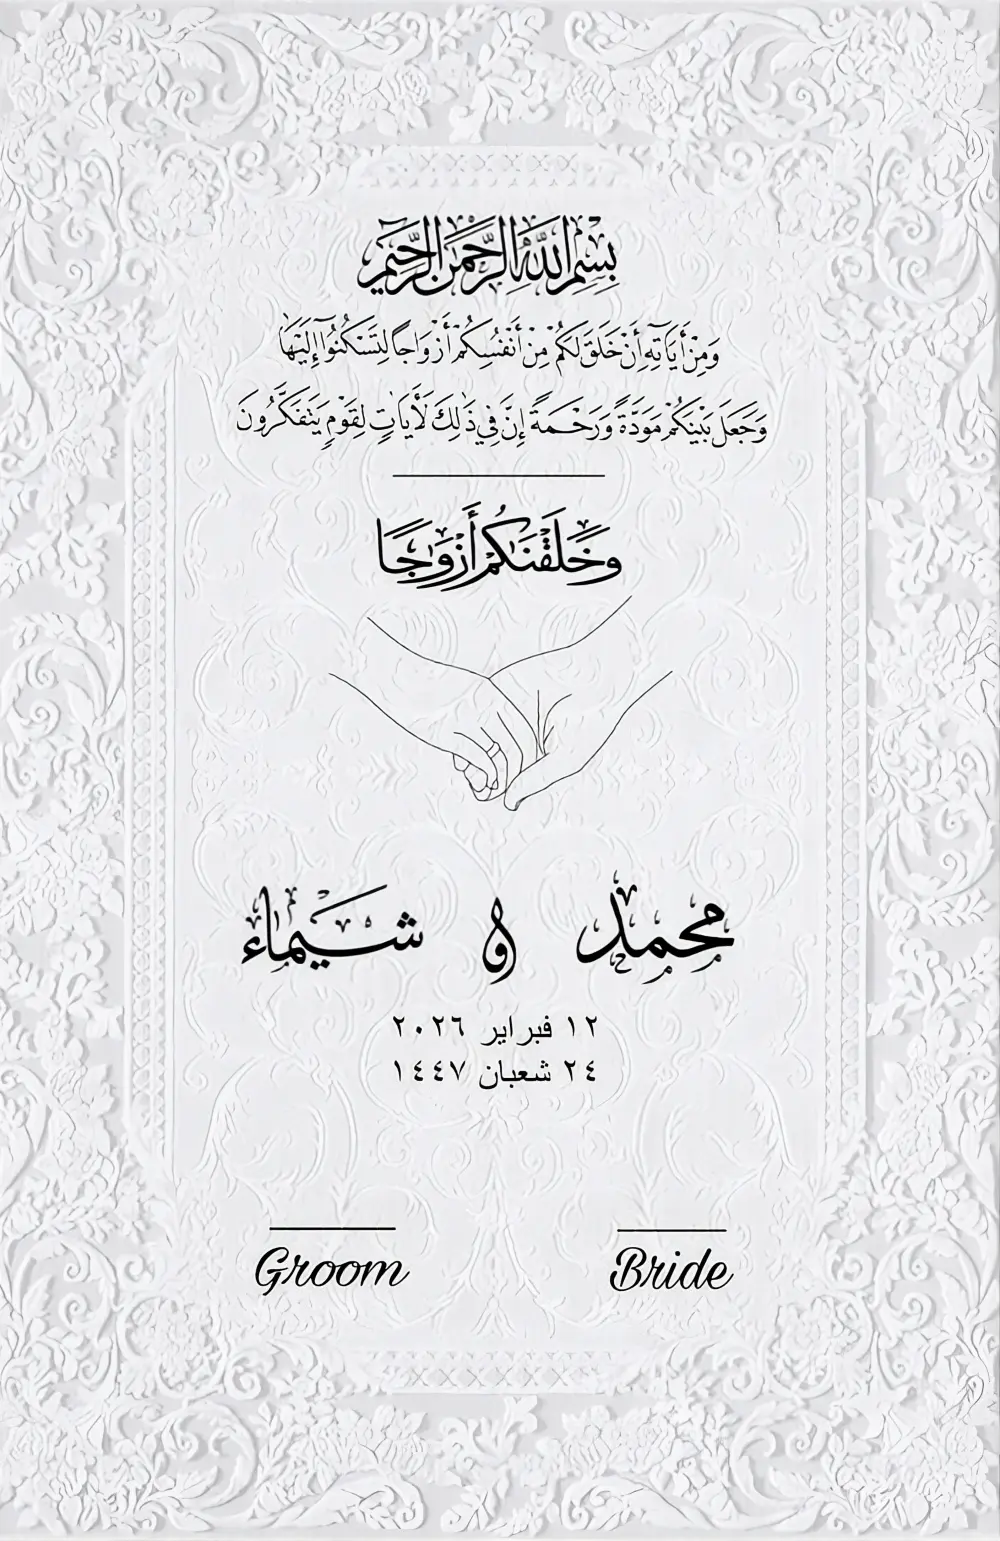 بِسْمِ اللَّهِ الرَّحْمَنِ الرَّحِيمِ
وَمِنْ أَيَاتِهِ أَنْ خَلَقَ لَكُمْ مِنْ أَنْفُسِكُمْ أَزْوَاجاً لِتَسْكُنُوا إِلَيْهَا
وَجَعَلَ بَيْنَكُمْ مَوَدَّةً وَرَحْمَةً إِنَّ فِي ذَٰلِكَ لَأَيَاتٍ لِقَوْمٍ يَتَفَكَّرُونَ
وَخَلَقْنَاكُمْ أَزْوَاجًا
محمد و شيماء
١٢ فبراير ٢٠٢٦
٢٤ شعبان ١٤٤٧
Groom Bride